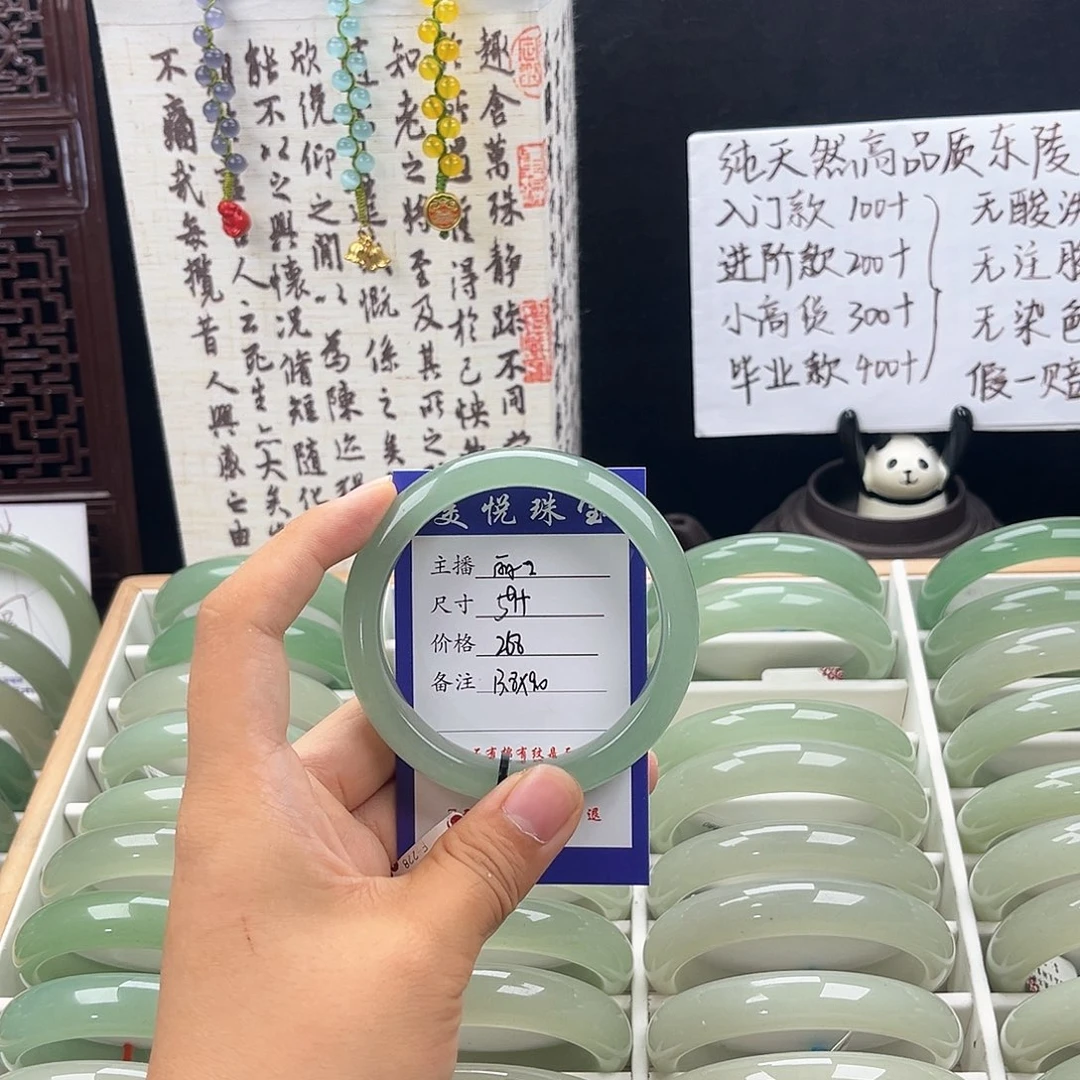 趣舍萬殊靜躁不同
知老之將至及其所之
慨係之矣
欣俛仰之閒以為陳迹
能不以之興懷況脩短隨化
人云死生亦大矣
不痛哉每攬昔人興感之由
纯天然高品质东陵
入门款 100+
进阶款 200+
小高货 300+
毕业款 400+
无酸洗
无注胶
无染色
假一赔
悦珠宝
主播
尺寸 59+
价格 268
备注 13.8X9.0
有棉有纹是
退